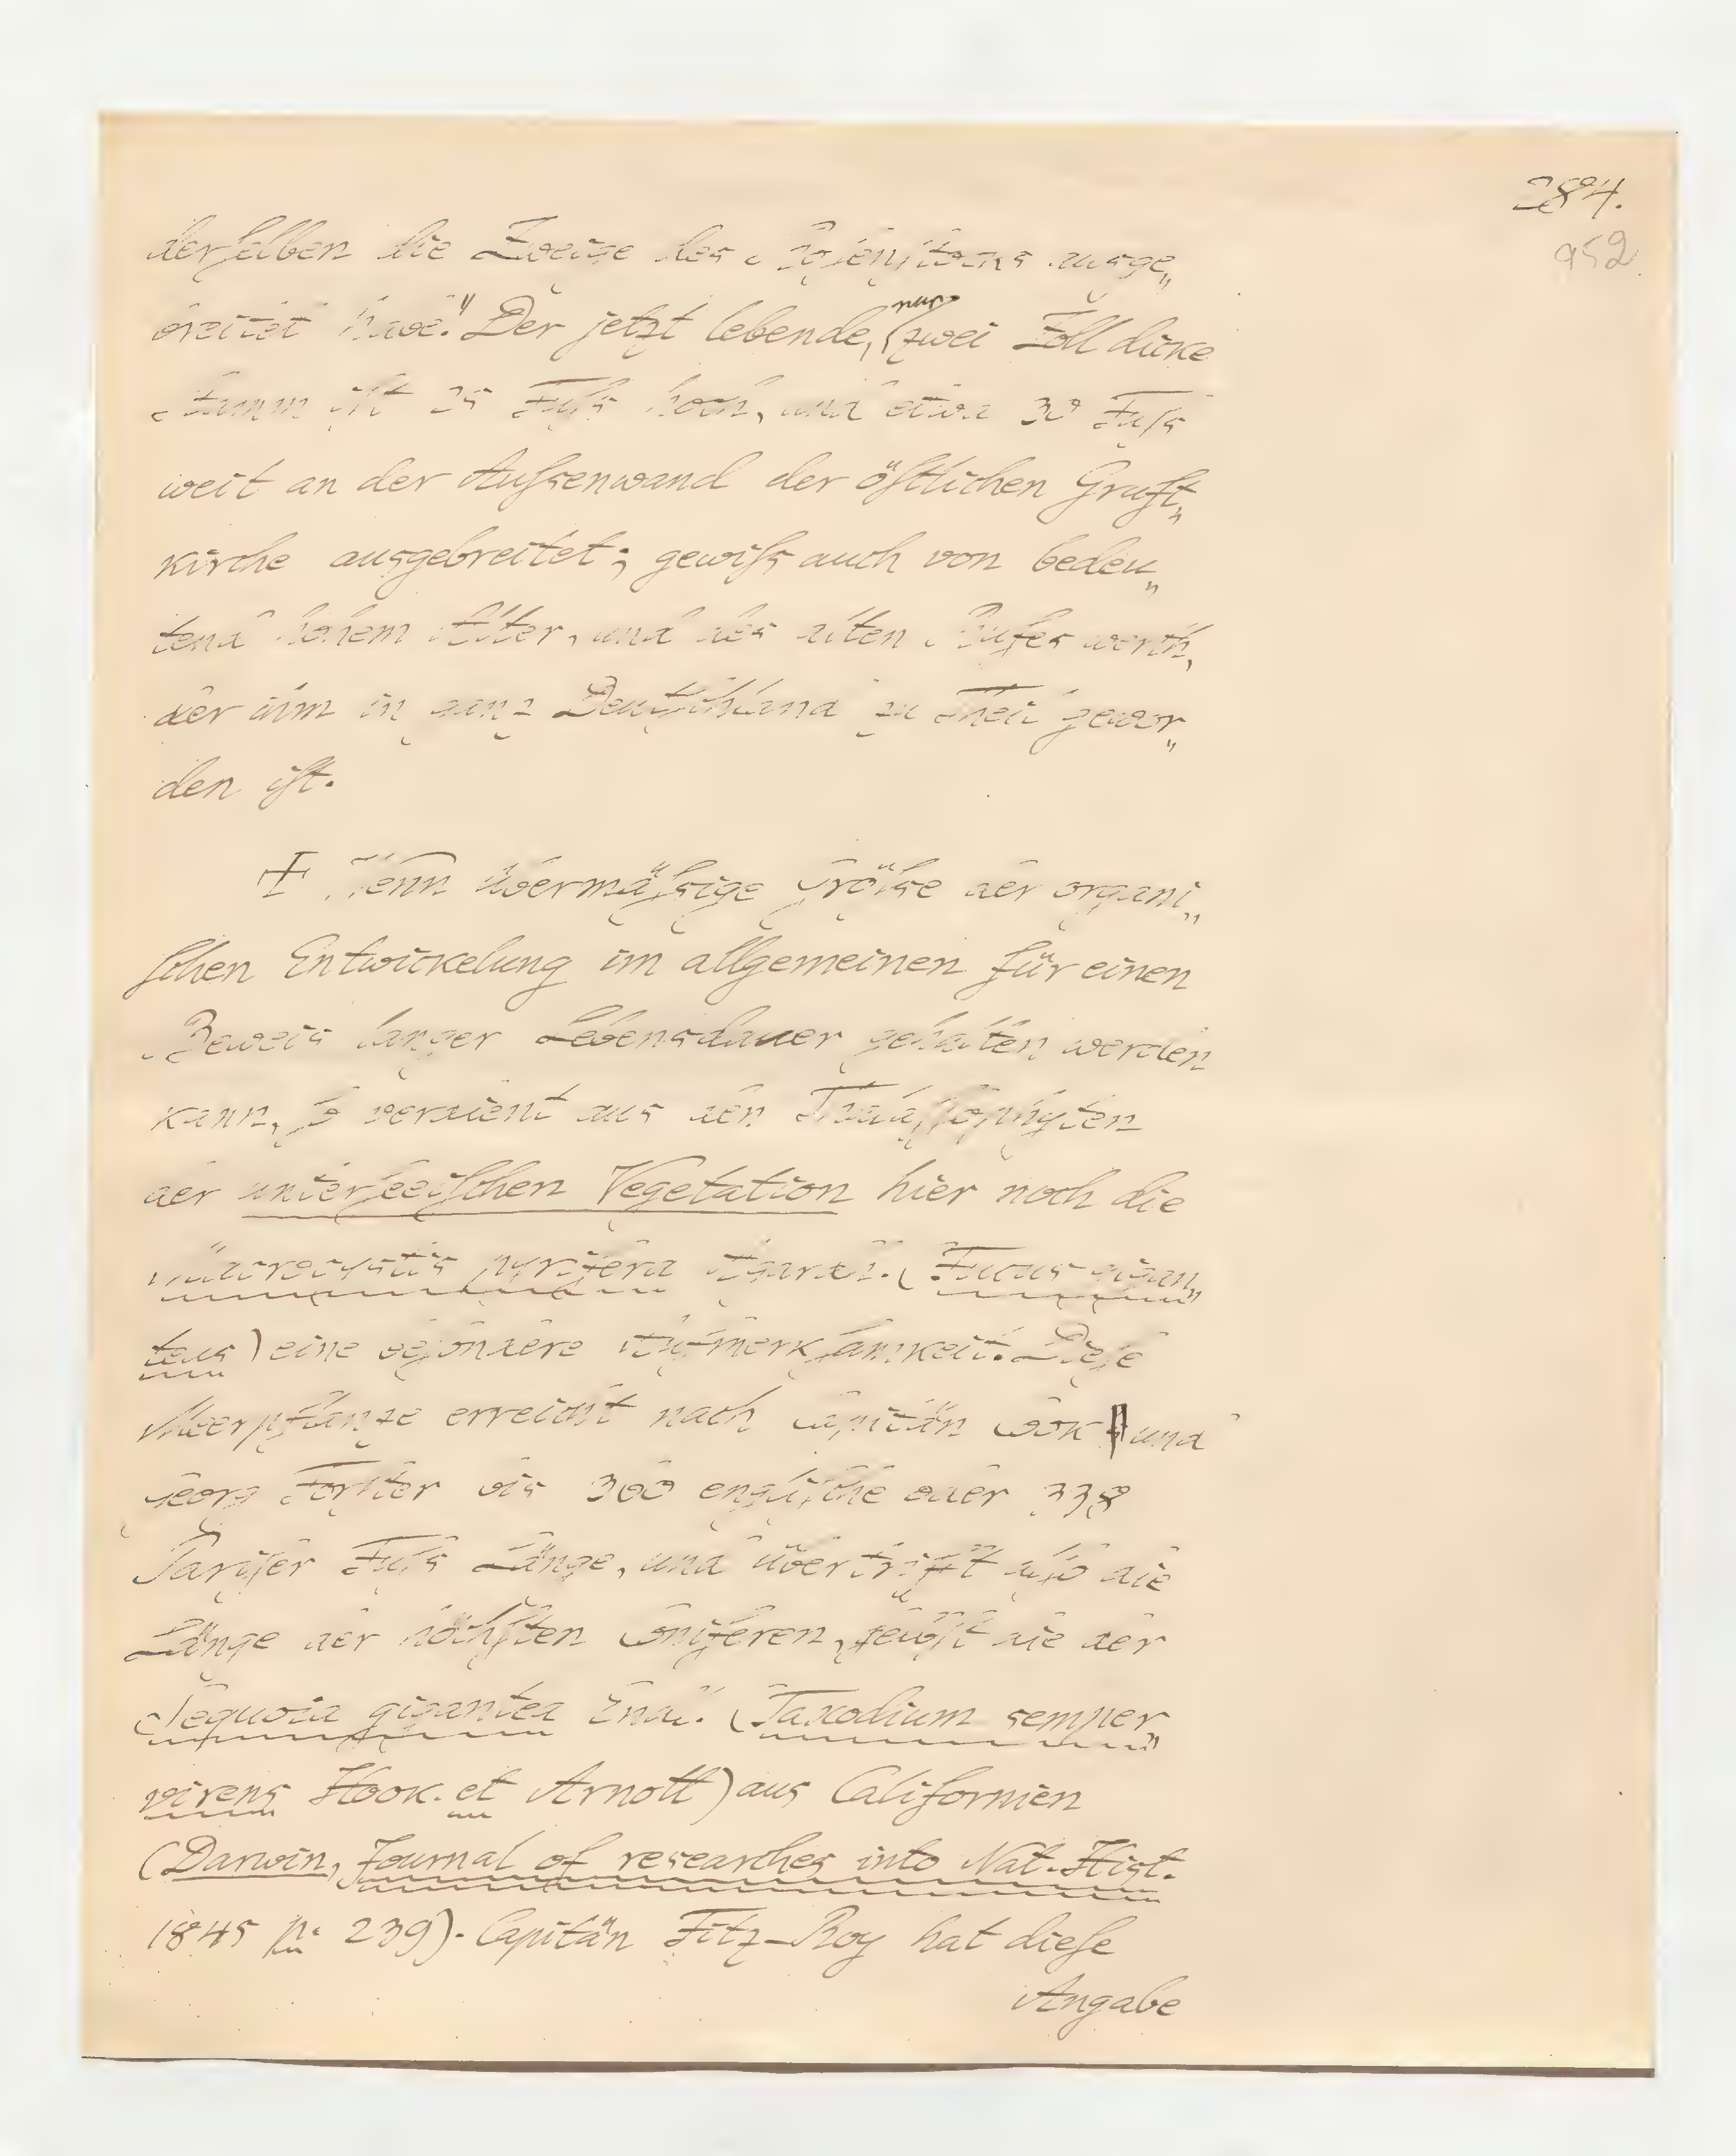 284.
952
derselben die Zweige des Rosenstocks ausge„
breitet habe." Der jetzt lebende, nur zwei Zoll dicke
Stamm ist 25 Fuſs hoch, und etwa 30 Fuſs
weit an der Auſsenwand der öſtlichen Gruft„
kirche ausgebreitet; gewiſs auch von bedeu„
tend hohem Alter, und des alten Rufes werth,
der ihm in ganz Deutſchland zu Theil gewor„
den iſt.
+ Wenn übermäſsige Gröſse der organi„
ſchen Entwickelung im allgemeinen für einen
Beweis langer Lebensdauer gehalten werden
kann, ſo verdient aus den Thalaſſophyten
der unterſeeiſchen Vegetation hier noch die
Macrocystis pyrifera Agardh. (Fucus gigan„
teus) eine beſondere Aufmerkſamkeit. Dieſe
Meerpflanze erreicht nach Capitän Cook und
Georg Forſter bis 360 engliſche oder 338
Pariſer Fuſs Länge, und übertrifft alſo die
Länge der höchſten Coniferen, ſelbſt die der
Sequoia gigantea Endl. (Taxodium semper„
virens Hook. et Arnott) aus Californien
(Darwin, Journal of researches into Nat. Hist.
1845 p. 239). Capitän Fitz-Roy hat dieſe
Angabe